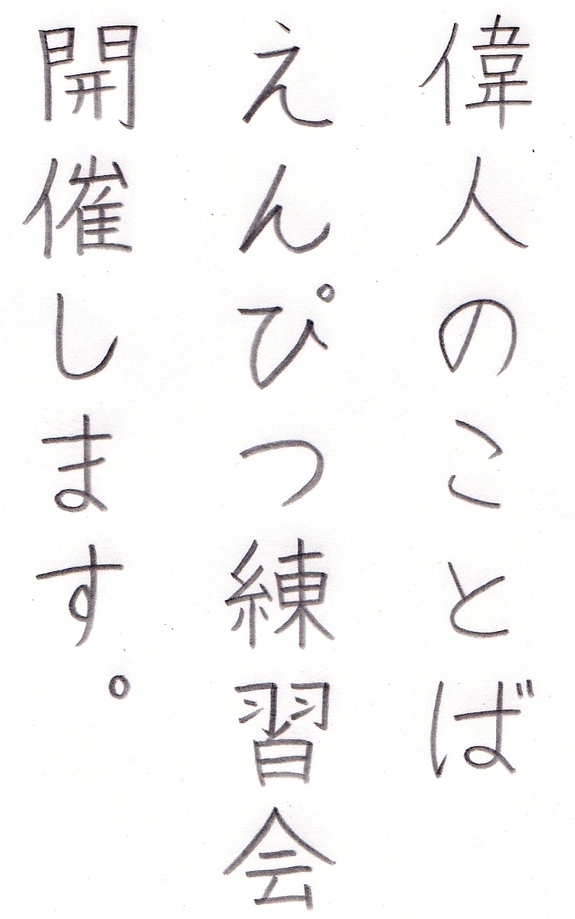 偉人のことば
えんぴつ練習会
開催します。